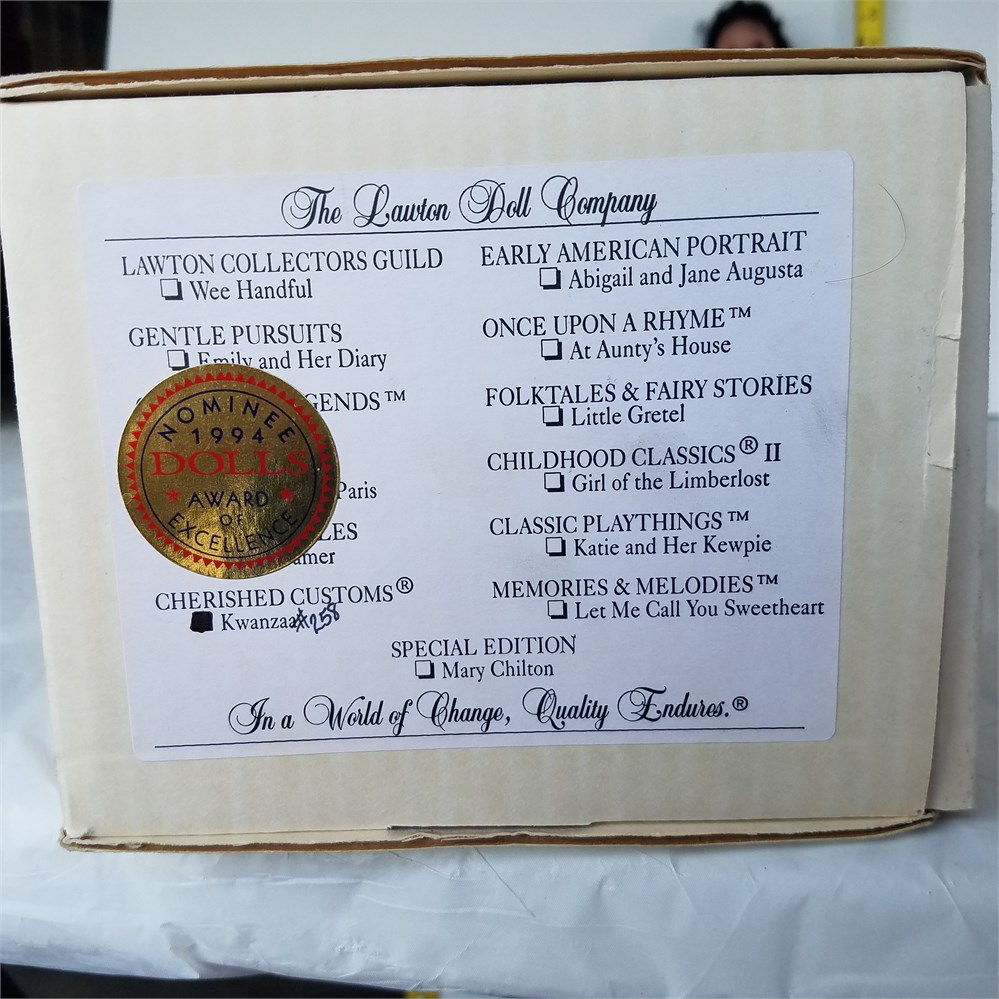 The Lawton Doll Company
LAWTON COLLECTORS GUILD
Wee Handful
GENTLE PURSUITS
Emily and Her Diary
GENDS™
Paris
LES
amer
CHERISHED CUSTOMS®
Kwanzaa #258
NOMINEE
1994
DOLLS
AWARD
OF
EXCELLENCE
EARLY AMERICAN PORTRAIT
Abigail and Jane Augusta
ONCE UPON A RHYME™
At Aunty's House
FOLKTALES & FAIRY STORIES
Little Gretel
CHILDHOOD CLASSICS® II
Girl of the Limberlost
CLASSIC PLAYTHINGS™
Katie and Her Kewpie
MEMORIES & MELODIES™
Let Me Call You Sweetheart
SPECIAL EDITION
Mary Chilton
In a World of Change, Quality Endures.®